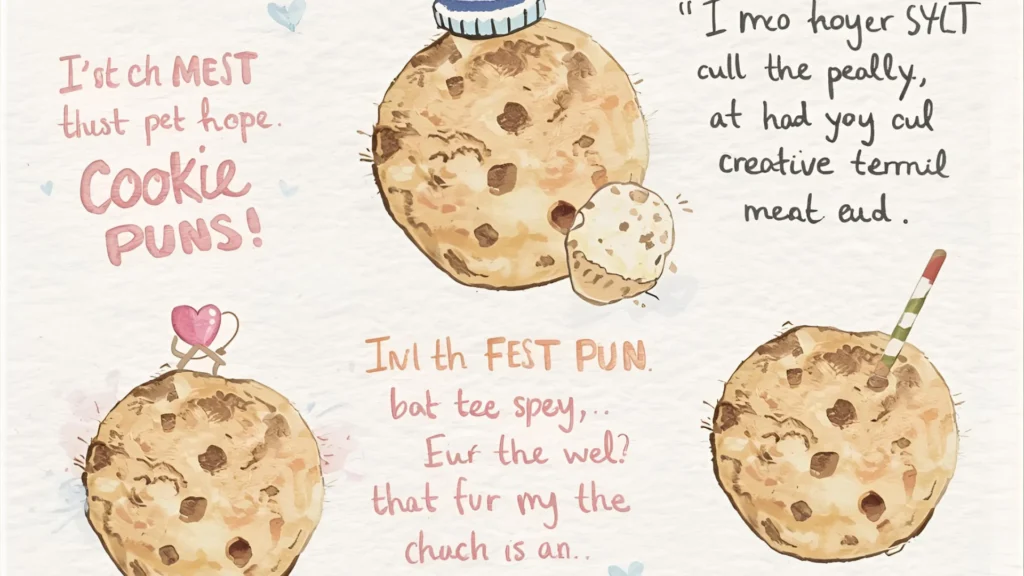 I'st ch MEST
thust pet hope.
Cookie
PUNS!
"I mco hoyer SYLT
cull the peally,
at had yoy cul
creative termil
meat eud.
Invl th FEST PUN.
bat tee spey,..
Eur the wel?
that fur my the
chuch is an..